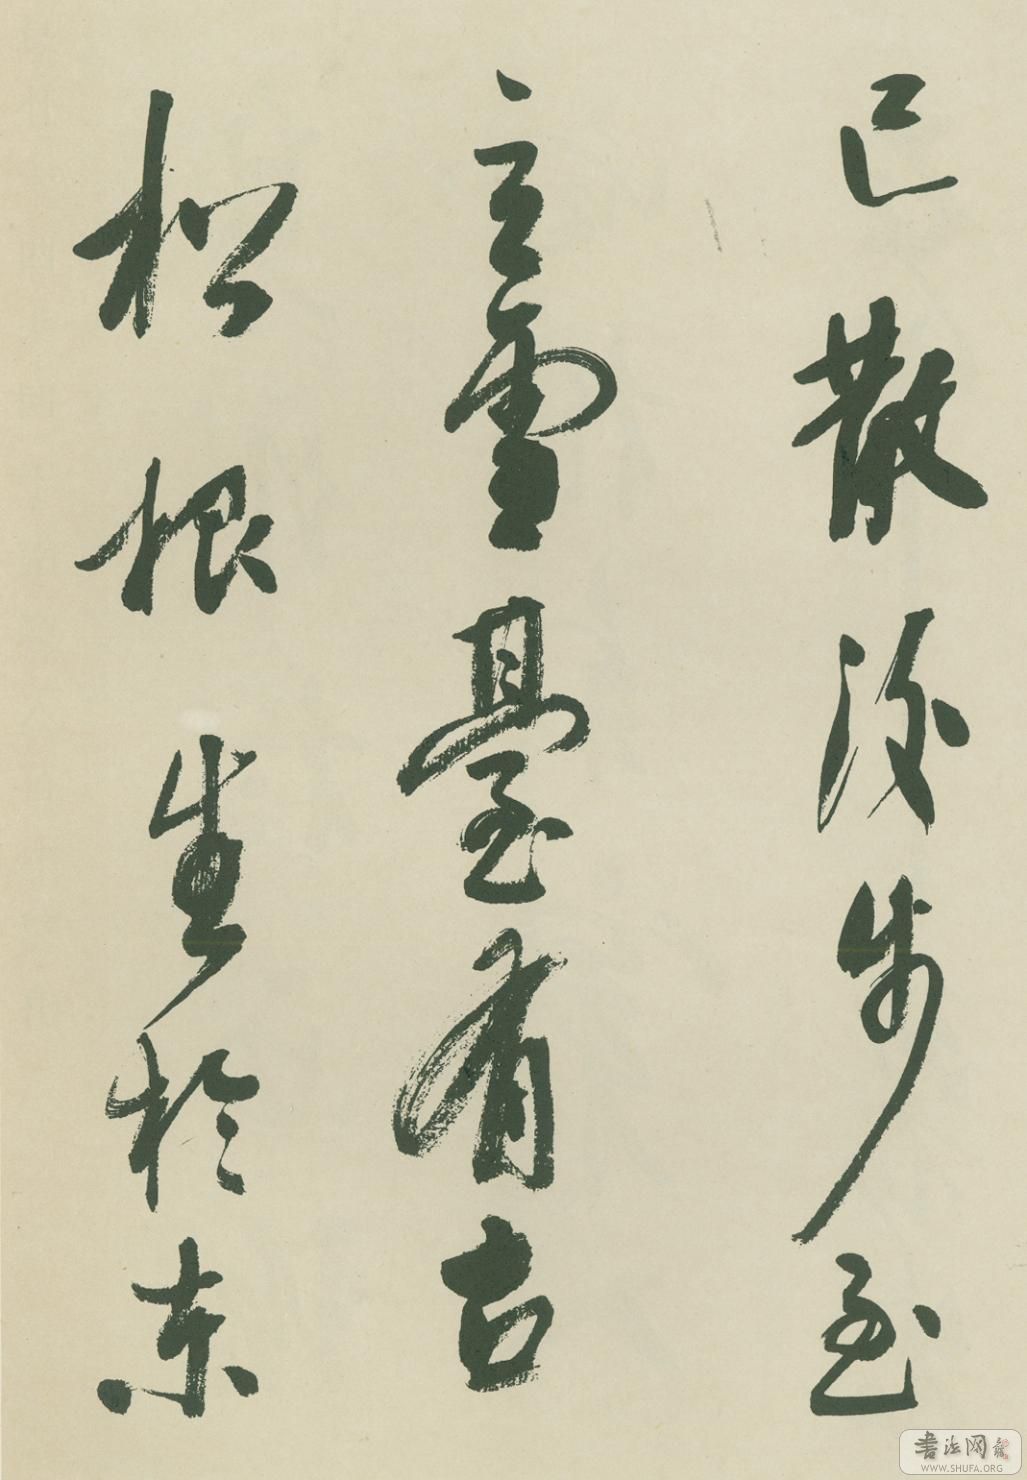 已散後步至
立雪臺有古
松根生於東
書法网
WWW.SHUFA.ORG